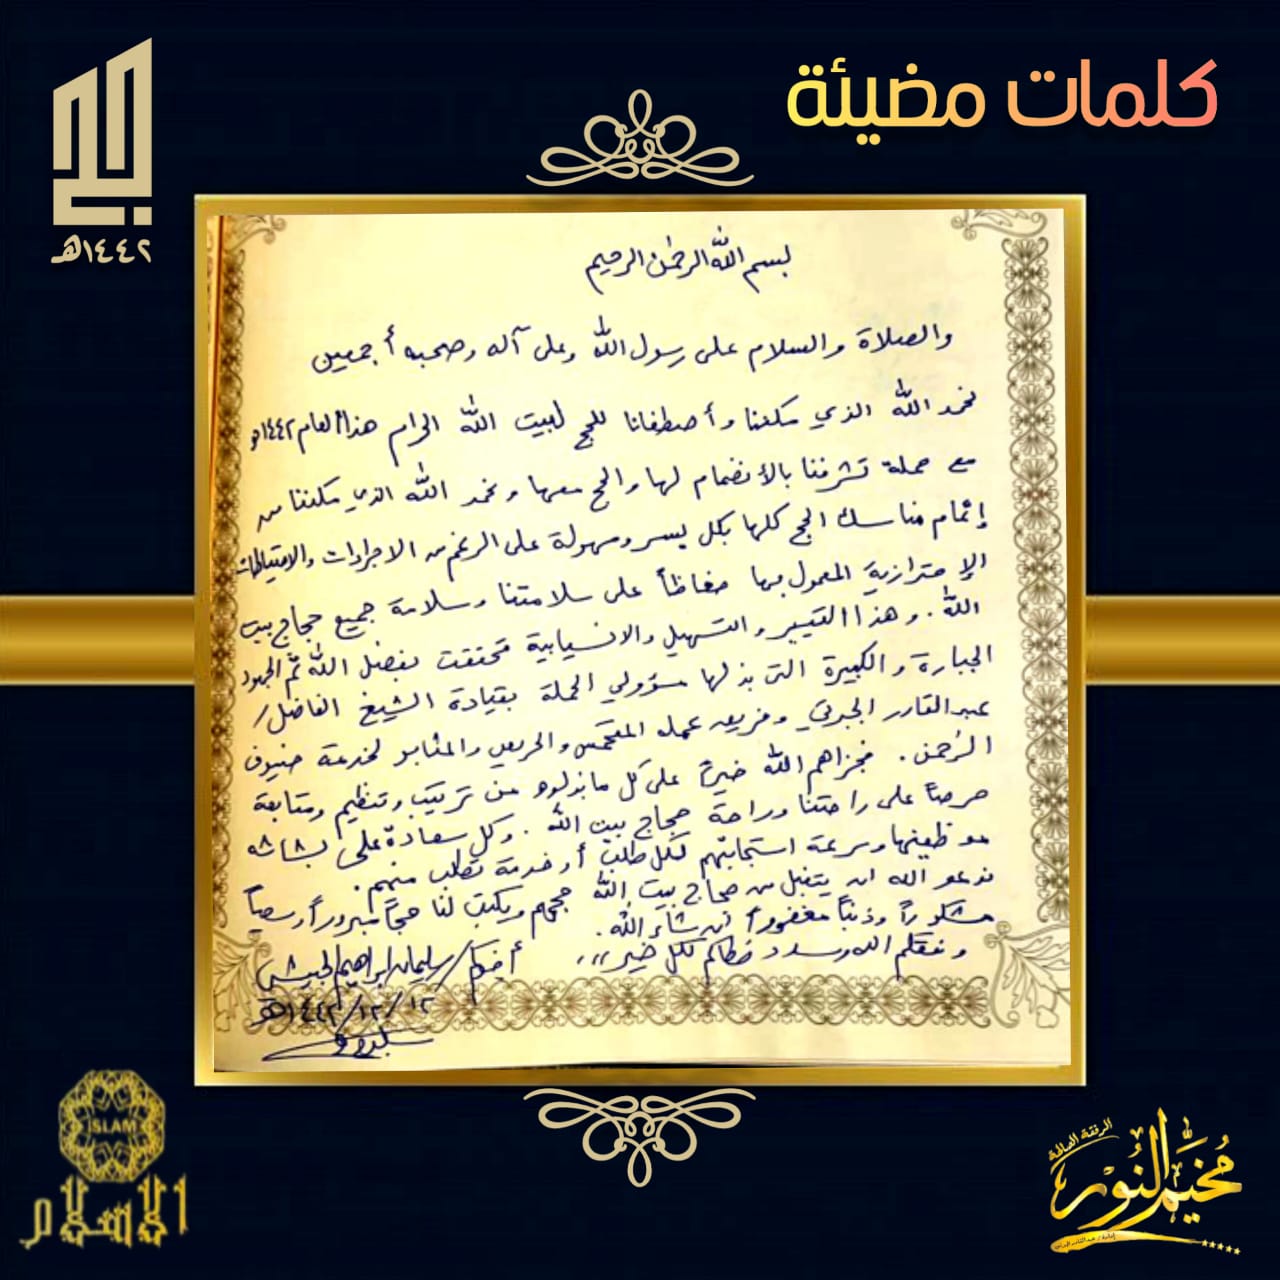 كلمات مضيئة
الحج
١٤٤٢هـ
بسم الله الرحمن الرحيم
والصلاة والسلام على رسول الله وعلى آله وصحبه أجمعين
نحمد الله الذي مكننا وأصطفانا للحج لبيت الله الحرام هذا العام ١٤٤٢هـ
مع حملة تشرفنا بالأنضمام لها والحج معها ونحمد الله الذي مكننا من
إتمام مناسك الحج كلها بكل يسر وسهولة على الرغم من الاجراءات والاحتياطات
الإحترازية المعمول بها حفاظاً على سلامتنا وسلامة جميع حجاج بيت
الله. وهذا التيسير والتسهيل والانسيابية تحققت بفضل الله ثم الجهود
الجبارة والكبيرة التي بذلها مسؤولي الحملة بقيادة الشيخ الفاضل/
عبدالقادر الجبرتي وفريق عمله المتحمس والحريص والمثابر لخدمة ضيوف
الرحمن. فجزاهم الله خيراً على كل ما بذلوه من ترتيب وتنظيم ومتابعة
حرصاً على راحتنا وراحة حجاج بيت الله. وكل سعادة على بشاشه
موظفيها وسرعة استجابتهم لكل طلب أو خدمة تطلب منهم.
ندعو الله ان يتقبل من حجاج بيت الله حجهم ويكتب لنا حجاً مبروراً وسعياً
مشكوراً وذنباً مغفوراً ان شاء الله.
وفقكم الله وسدد خطاكم لكل خير ،،،
أخوكم/ سليمان ابراهيم الحبيشي
١٢/١٢/١٤٤٢هـ
ISLAM
الاسلام
الرفقة الصالحة
مخيم النور